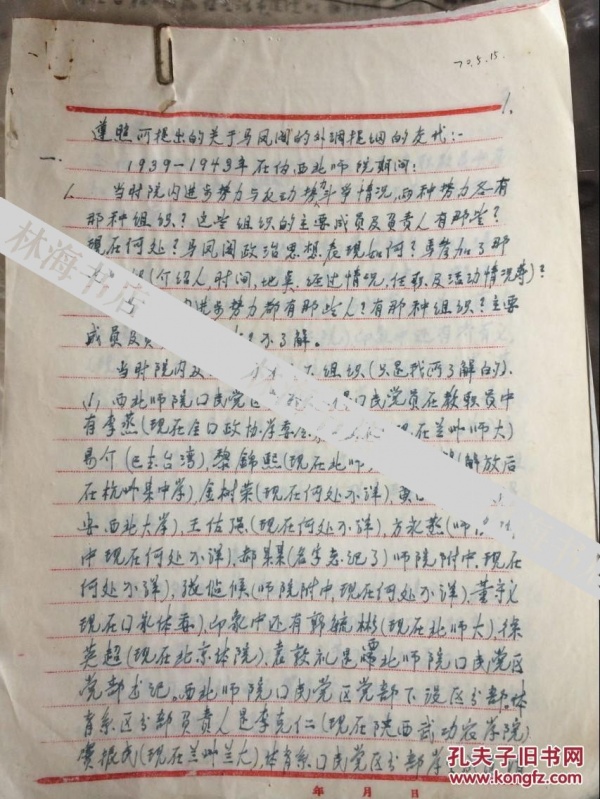 70.5.15.
1.
遵照所提出的关于马凤阁的外调提纲的交代:-
一、
1939-1943年在伪西北师院期间:
1、当时院内进步势力与反动势力斗争情况,两种势力各有
那种组织?这些组织的主要成员及负责人有那些?
现在何处?马凤阁政治思想表现如何?马参加了那
(介绍人,时间,地点,经过情况,任职及活动情况等)?
进步势力都有那些人?有那种组织?主要
成员及 不了解。
当时院内反 组织(只是我所了解的)、
(1)、西北师院国民党区 国民党员在教职员中
有李蒸(现在全国政协常委 现在兰州师大)
易价(已去台湾),黎锦熙(现在北师 解放后
在杭州某中学),金树荣(现在何处不详),
西北大学),王佐强(现在何处不详),方永蒸(师
中现在何处不详),郝某某(名字忘记了)师院附中,现在
何处不详),张 (师院附中,现在何处不详),董守义
现在国家体委),印象中还有郭毓彬(现在北师大),徐
英超(现在北京体院),袁敦礼是 北师院国民党区
党部书记。西北师院国民党区党部下设区分部。体
育系区分部负责人是李克仁(现在陕西武功农学院)
现在兰州兰大),体育系国民党区分部
年 月 日
林海书店
孔夫子旧书网
www.kongfz.com